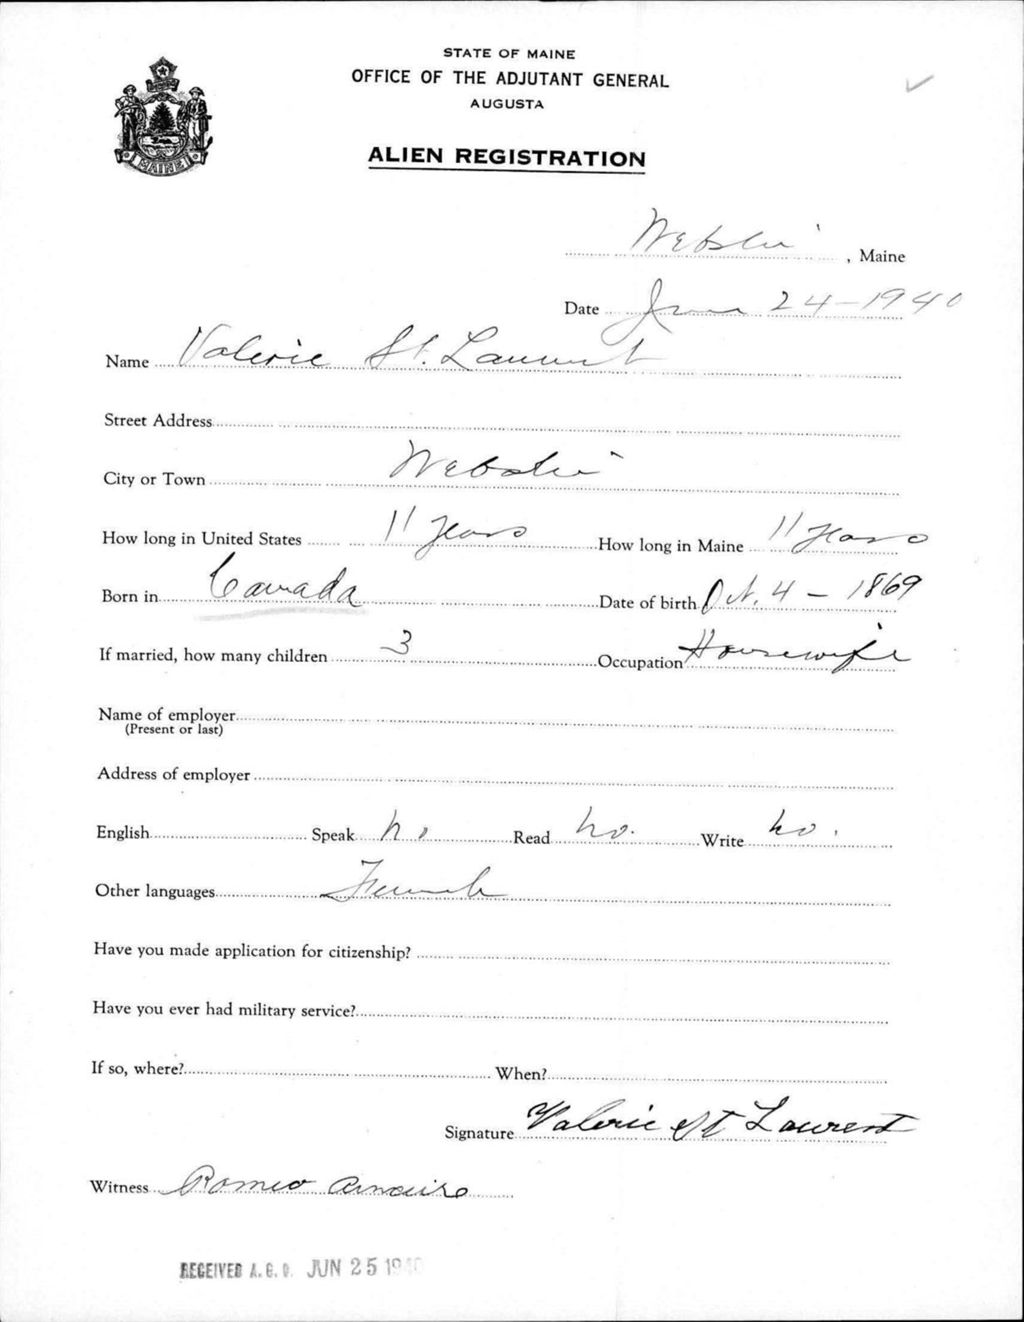 STATE OF MAINE
OFFICE OF THE ADJUTANT GENERAL
AUGUSTA
MAINE
ALIEN REGISTRATION
Webster, Maine
Date June 24-1940
Name Valerie St. Laurent
Street Address
City or Town Webster
How long in United States 11 Years How long in Maine 11 Years
Born in Canada Date of birth Oct. 4 - 1869
If married, how many children 3 Occupation Housewife
Name of employer
(Present or last)
Address of employer
English Speak no Read no. Write no.
Other languages French
Have you made application for citizenship?
Have you ever had military service?
If so, where? When?
Signature Valerie St Laurent
Witness Romeo
RECEIVED A.G.O. JUN 25 1940